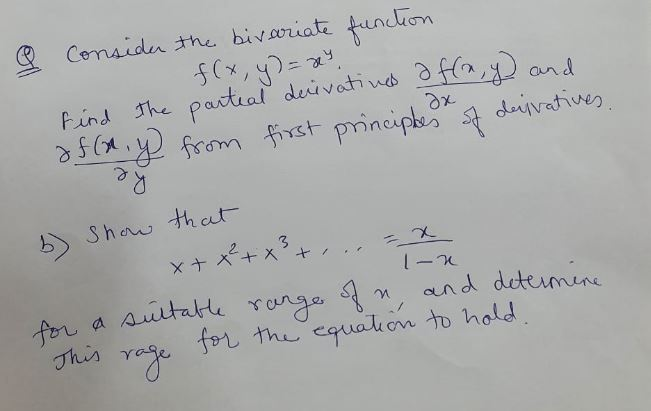 Q Consider the bivariate function
f(x, y) = x^y.
Find the partial derivatives ∂f(x, y)/∂x and
∂f(x, y)/∂y from first principles of derivatives.
b) Show that
x + x² + x³ + ... = x/(1-x)
for a suitable range of x, and determine
This rage for the equation to hold.